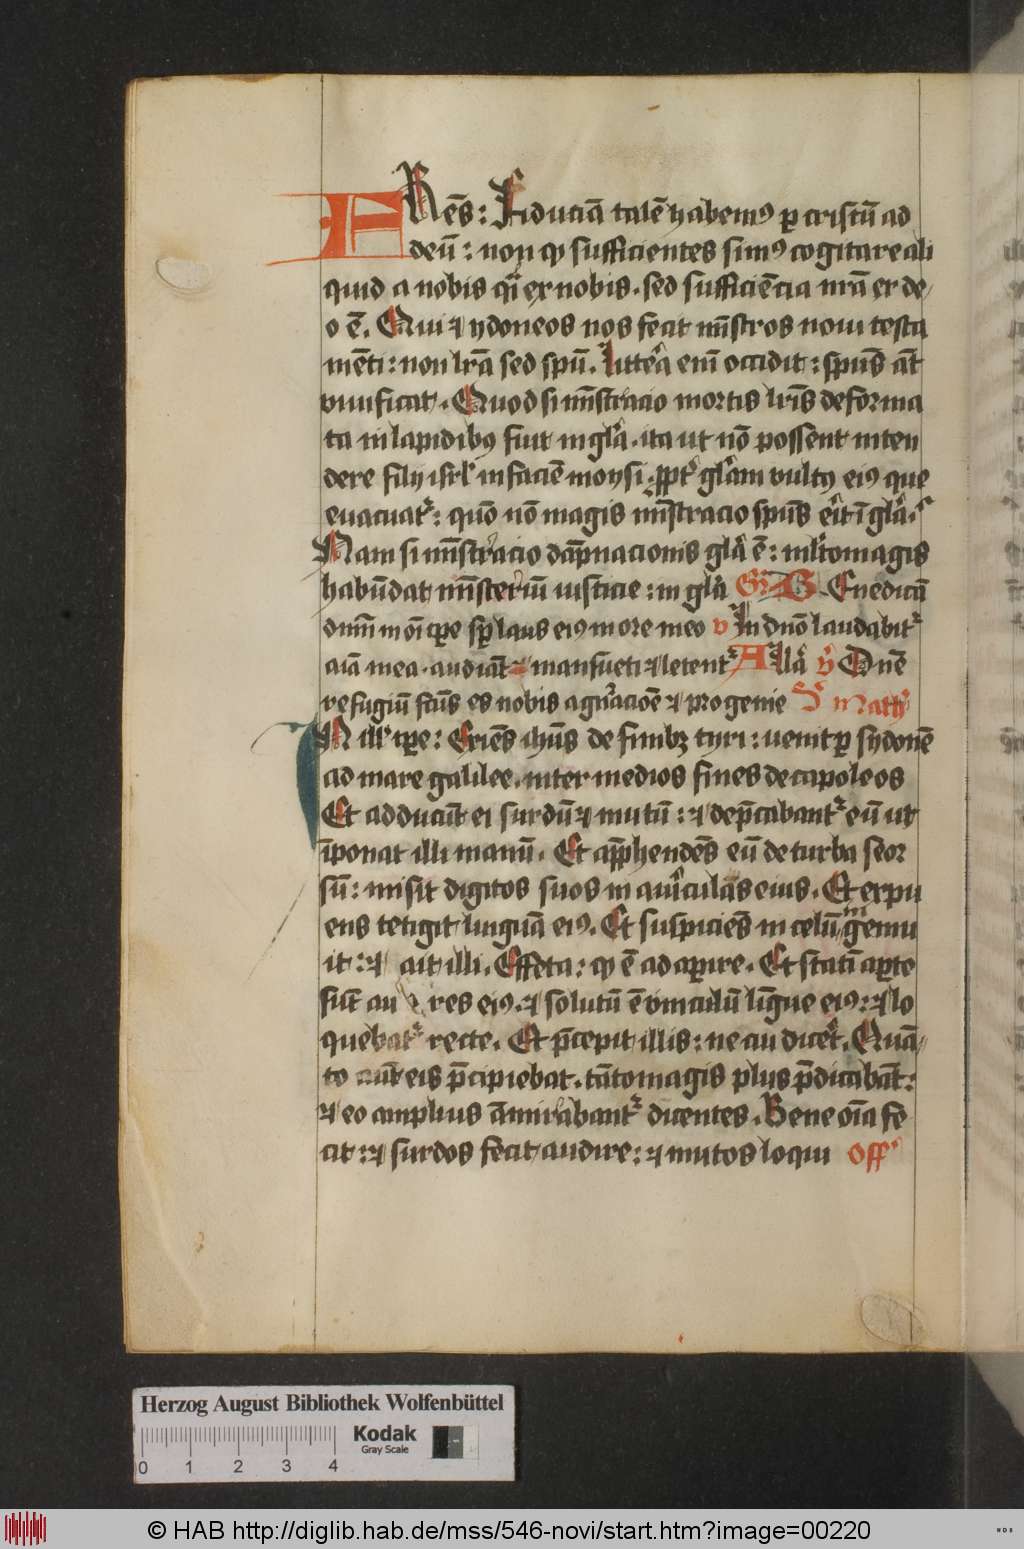 FRes: Fiduciā talē habemꝰ ꝑ cristū ad
deū: non ꝙ sufficientes simꝰ cogitare ali
quid a nobis q̄ı ex nobis. sed sufficiēcia nrā ex de
o ē. Qui ⁊ ydoneos nos fecit mı̄stros noui testa
mēti: non lrā sed spū. littera enī occidit: spūs aūt
viuificat. Quod si mı̄stracio mortis lrīs deforma
ta in lapidibꝰ fuit in glā. ita ut nō possent inten
dere filij isrl in faciē moysi. ꝓpt glām vultꝰ eiꝰ que
evacuat: quō nō magis mı̄stracio spūs erit ī glā.
Nam si mı̄stracio dāpnacionis glā ē: mlto magis
habūdat mı̄steriū iusticie: in glā Gr̄ BEnedicā
dnm̄ in oī tpe sp laus eiꝰ in ore meo v In dnō laudabit
aīa mea. audiāt manſueti ⁊ letent Allā v̄ Dnē
refugiū fcūs es nobis a gnācioē ⁊ progenie S Math
IN ill tpe: Exiēs ihūs de finibꝫ tyri: uenit ꝑ sydonē
ad mare galilee. inter medios fines decapoleos
Et adducūt ei surdū ⁊ mutū: ⁊ dep̄cabant eū ut
īponat illi manū. Et app̄hendēs eū de turba seor
sū: misit digitos suos in auriculās eius. Et expu
ens tetigit linguā eiꝰ. Et suspiciēs in celū īgemu
it: ⁊ ait illi. Effeta: ꝙ ē adaꝑire. Et statī aꝑte
sūt au res eiꝰ. ⁊ solutū ē vinculū līgue eiꝰ: ⁊ lo
quebat recte. Et p̄cepit illis: ne cu dicēt. Quā
to aūt eis p̄cipiebat. tāto magis plus p̄dicabāt:
⁊ eo amplius āmirabant dicentes. Bene oīa fe
cit: ⁊ surdos fecit audire: ⁊ mutos loqui off
Herzog August Bibliothek Wolfenbüttel
Kodak
Gray Scale
0 1 2 3 4
© HAB http://diglib.hab.de/mss/546-novi/start.htm?image=00220